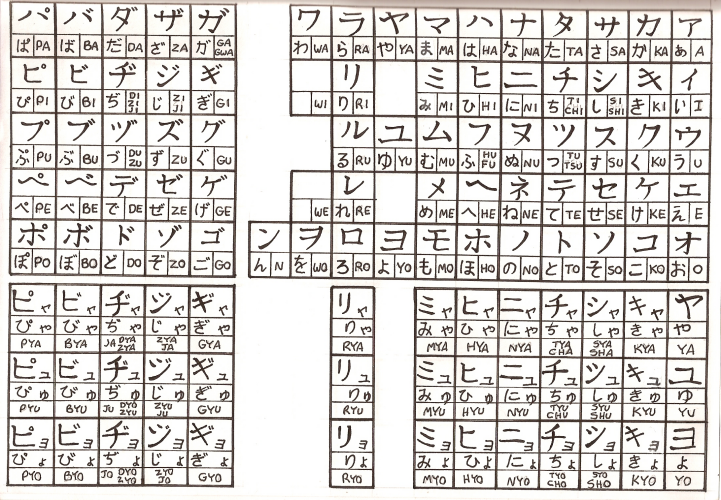 パ バ ダ ザ ガ ワ ラ ヤ マ ハ ナ タ サ カ ア
ぱ PA ば BA だ DA ざ ZA が GA GWA わ WA ら RA や YA ま MA は HA な NA た TA さ SA か KA あ A
ピ ビ ヂ ジ ギ リ ミ ヒ ニ チ シ キ イ
ぴ PI び BI ぢ DI ZI JI じ ZI JI ぎ GI WI り RI み MI ひ HI に NI ち TI CHI し SI SHI き KI い I
プ ブ ヅ ズ グ ル ユ ム フ ヌ ツ ス ク ウ
ぷ PU ぶ BU づ DU ZU ず ZU ぐ GU る RU ゆ YU む MU ふ HU FU ぬ NU つ TU TSU す SU く KU う U
ペ ベ デ ゼ ゲ レ メ ヘ ネ テ セ ケ エ
ぺ PE べ BE で DE ぜ ZE げ GE WE れ RE め ME へ HE ね NE て TE せ SE け KE え E
ポ ボ ド ゾ ゴ ン ヲ ロ ヨ モ ホ ノ ト ソ コ オ
ぽ PO ぼ BO ど DO ぞ ZO ご GO ん N を WO ろ RO よ YO も MO ほ HO の NO と TO そ SO こ KO お O
ピャ ビャ ヂャ ジャ ギャ リャ ミャ ヒャ ニャ チャ シャ キャ ヤ
ぴゃ びゃ ぢゃ じゃ ぎゃ りゃ みゃ ひゃ にゃ ちゃ しゃ きゃ や
PYA BYA JA DYA ZYA ZYA JA GYA RYA MYA HYA NYA TYA CHA SYA SHA KYA YA
ピュ ビュ ヂュ ジュ ギュ リュ ミュ ヒュ ニュ チュ シュ キュ ユ
ぴゅ びゅ ぢゅ じゅ ぎゅ りゅ みゅ ひゅ にゅ ちゅ しゅ きゅ ゆ
PYU BYU JU DYO ZYU ZYU JU GYU RYU MYU HYU NYU TYU CHU SYU SHU KYU YU
ピョ ビョ ヂョ ジョ ギョ リョ ミョ ヒョ ニョ チョ ショ キョ ヨ
ぴょ びょ ぢょ じょ ぎょ りょ みょ ひょ にょ ちょ しょ きょ よ
PYO BYO JO DYO ZYO ZYO JO GYO RYO MYO HYO NYO TYO CHO SYO SHO KYO YO